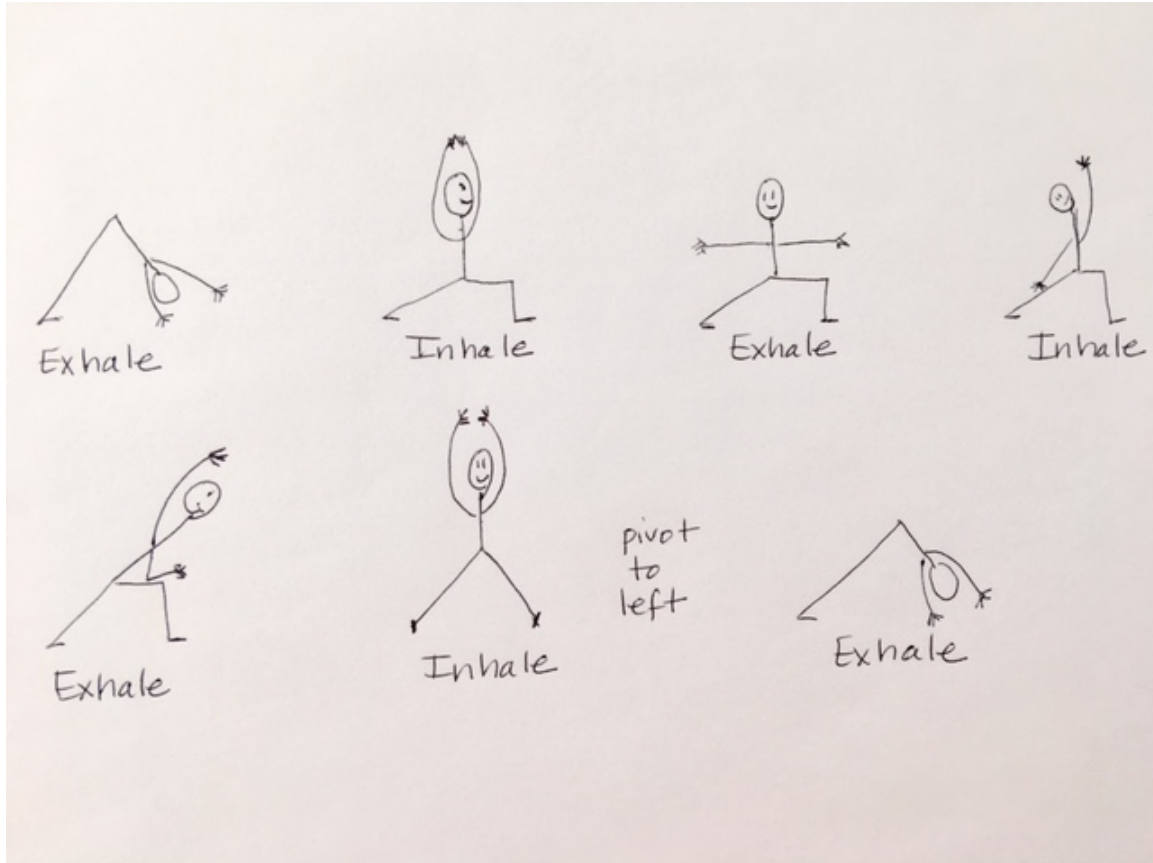 Exhale
Inhale
Exhale
Inhale
Exhale
Inhale
pivot
to
left
Exhale